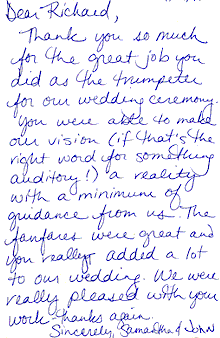 Dear Richard,
Thank you so much
for the great job you
did as the trumpeter
for our wedding ceremony.
You were able to make
our vision (if that's the
right word for something
auditory!) a reality
with a minimum of
guidance from us. The
fanfares were great and
you really added a lot
to our wedding. We were
really pleased with your
work - thanks again.
Sincerely, Samantha & John